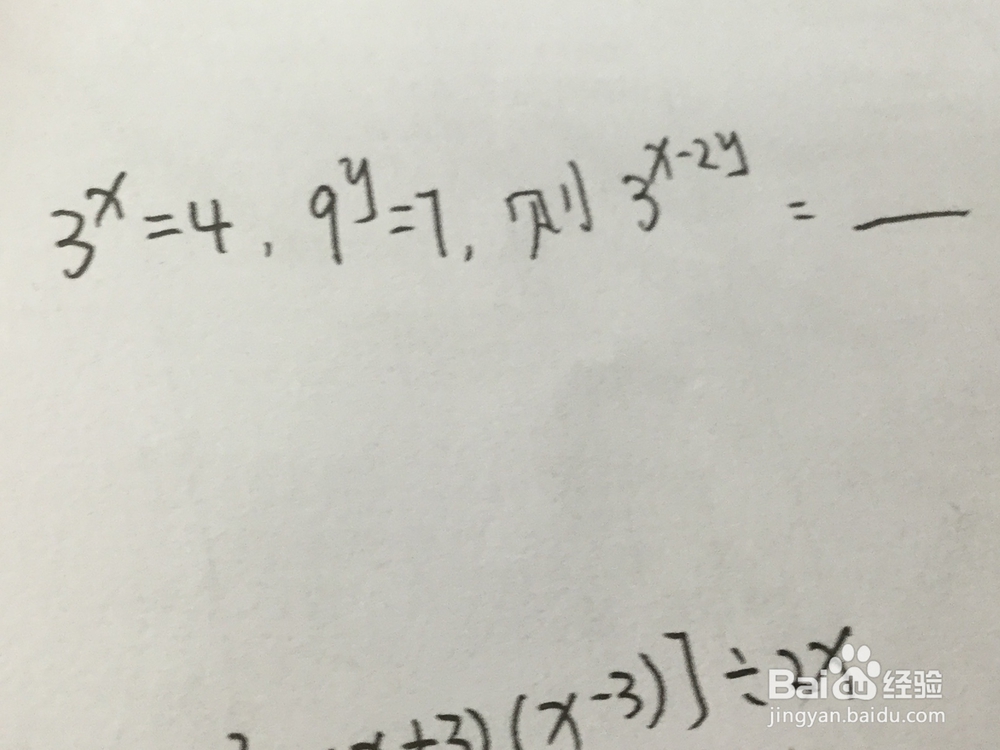 3^x=4, 9^y=7, 则 3^{x-2y} = ___
x+3)(x-3)]÷2x
Baidu经验
jingyan.baidu.com